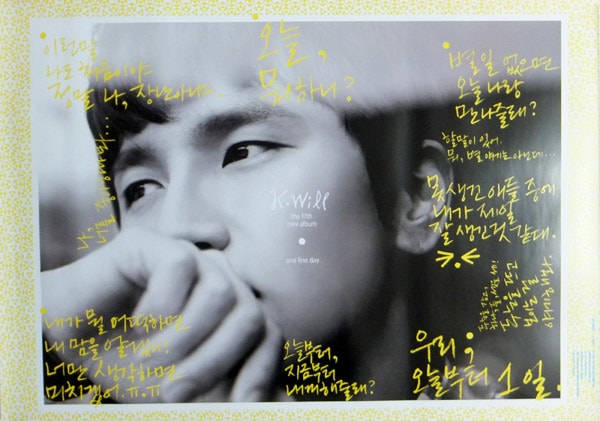 이런말
나도 처음이야
정말 나, 장난아니고.
오늘,
뭐하니?
별일 없으면
오늘 나랑
만나줄래?
할말이 있어.
뭐, 별 얘기는 아닌데...
못생긴 애들 중에
내가 제일
잘 생긴것 같대.
>.<
K.Will
the fifth
mini album
one fine day
내가 뭘 어떡하면
내 맘을 알겠니?
너만 생각하면
미치겠어.ㅠ.ㅠ
오늘부터,
지금부터
내꺼해줄래?
우리;
오늘부터 1일.